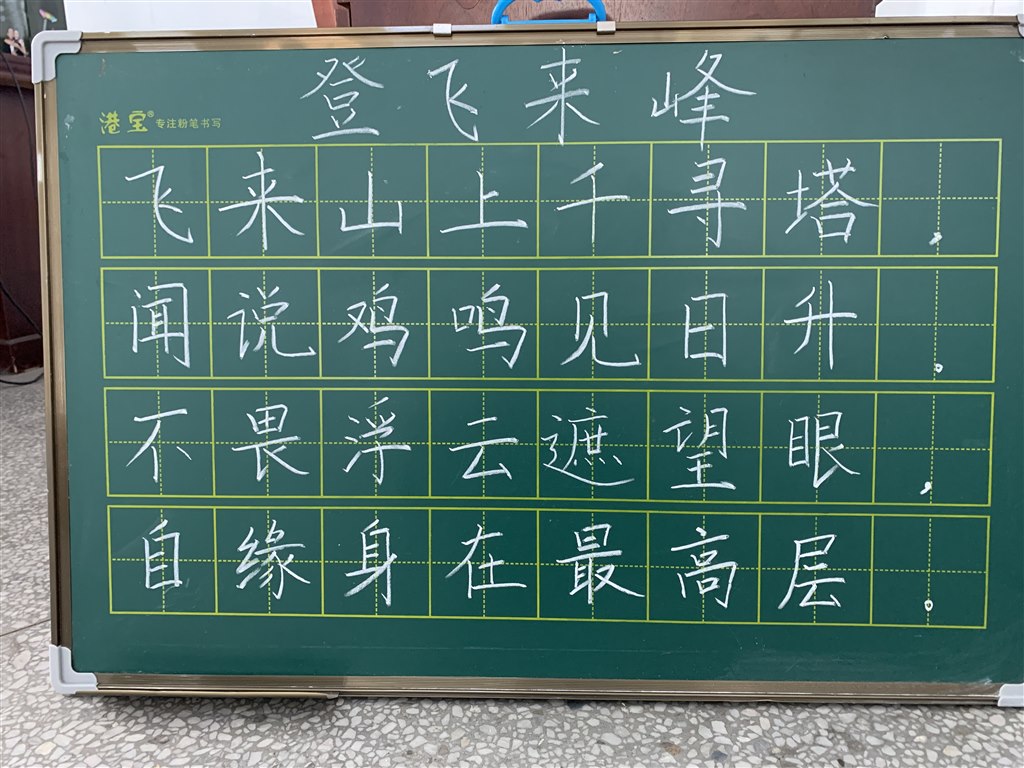 登飞来峰
港宝® 专注粉笔书写
飞来山上千寻塔，
闻说鸡鸣见日升。
不畏浮云遮望眼，
自缘身在最高层。